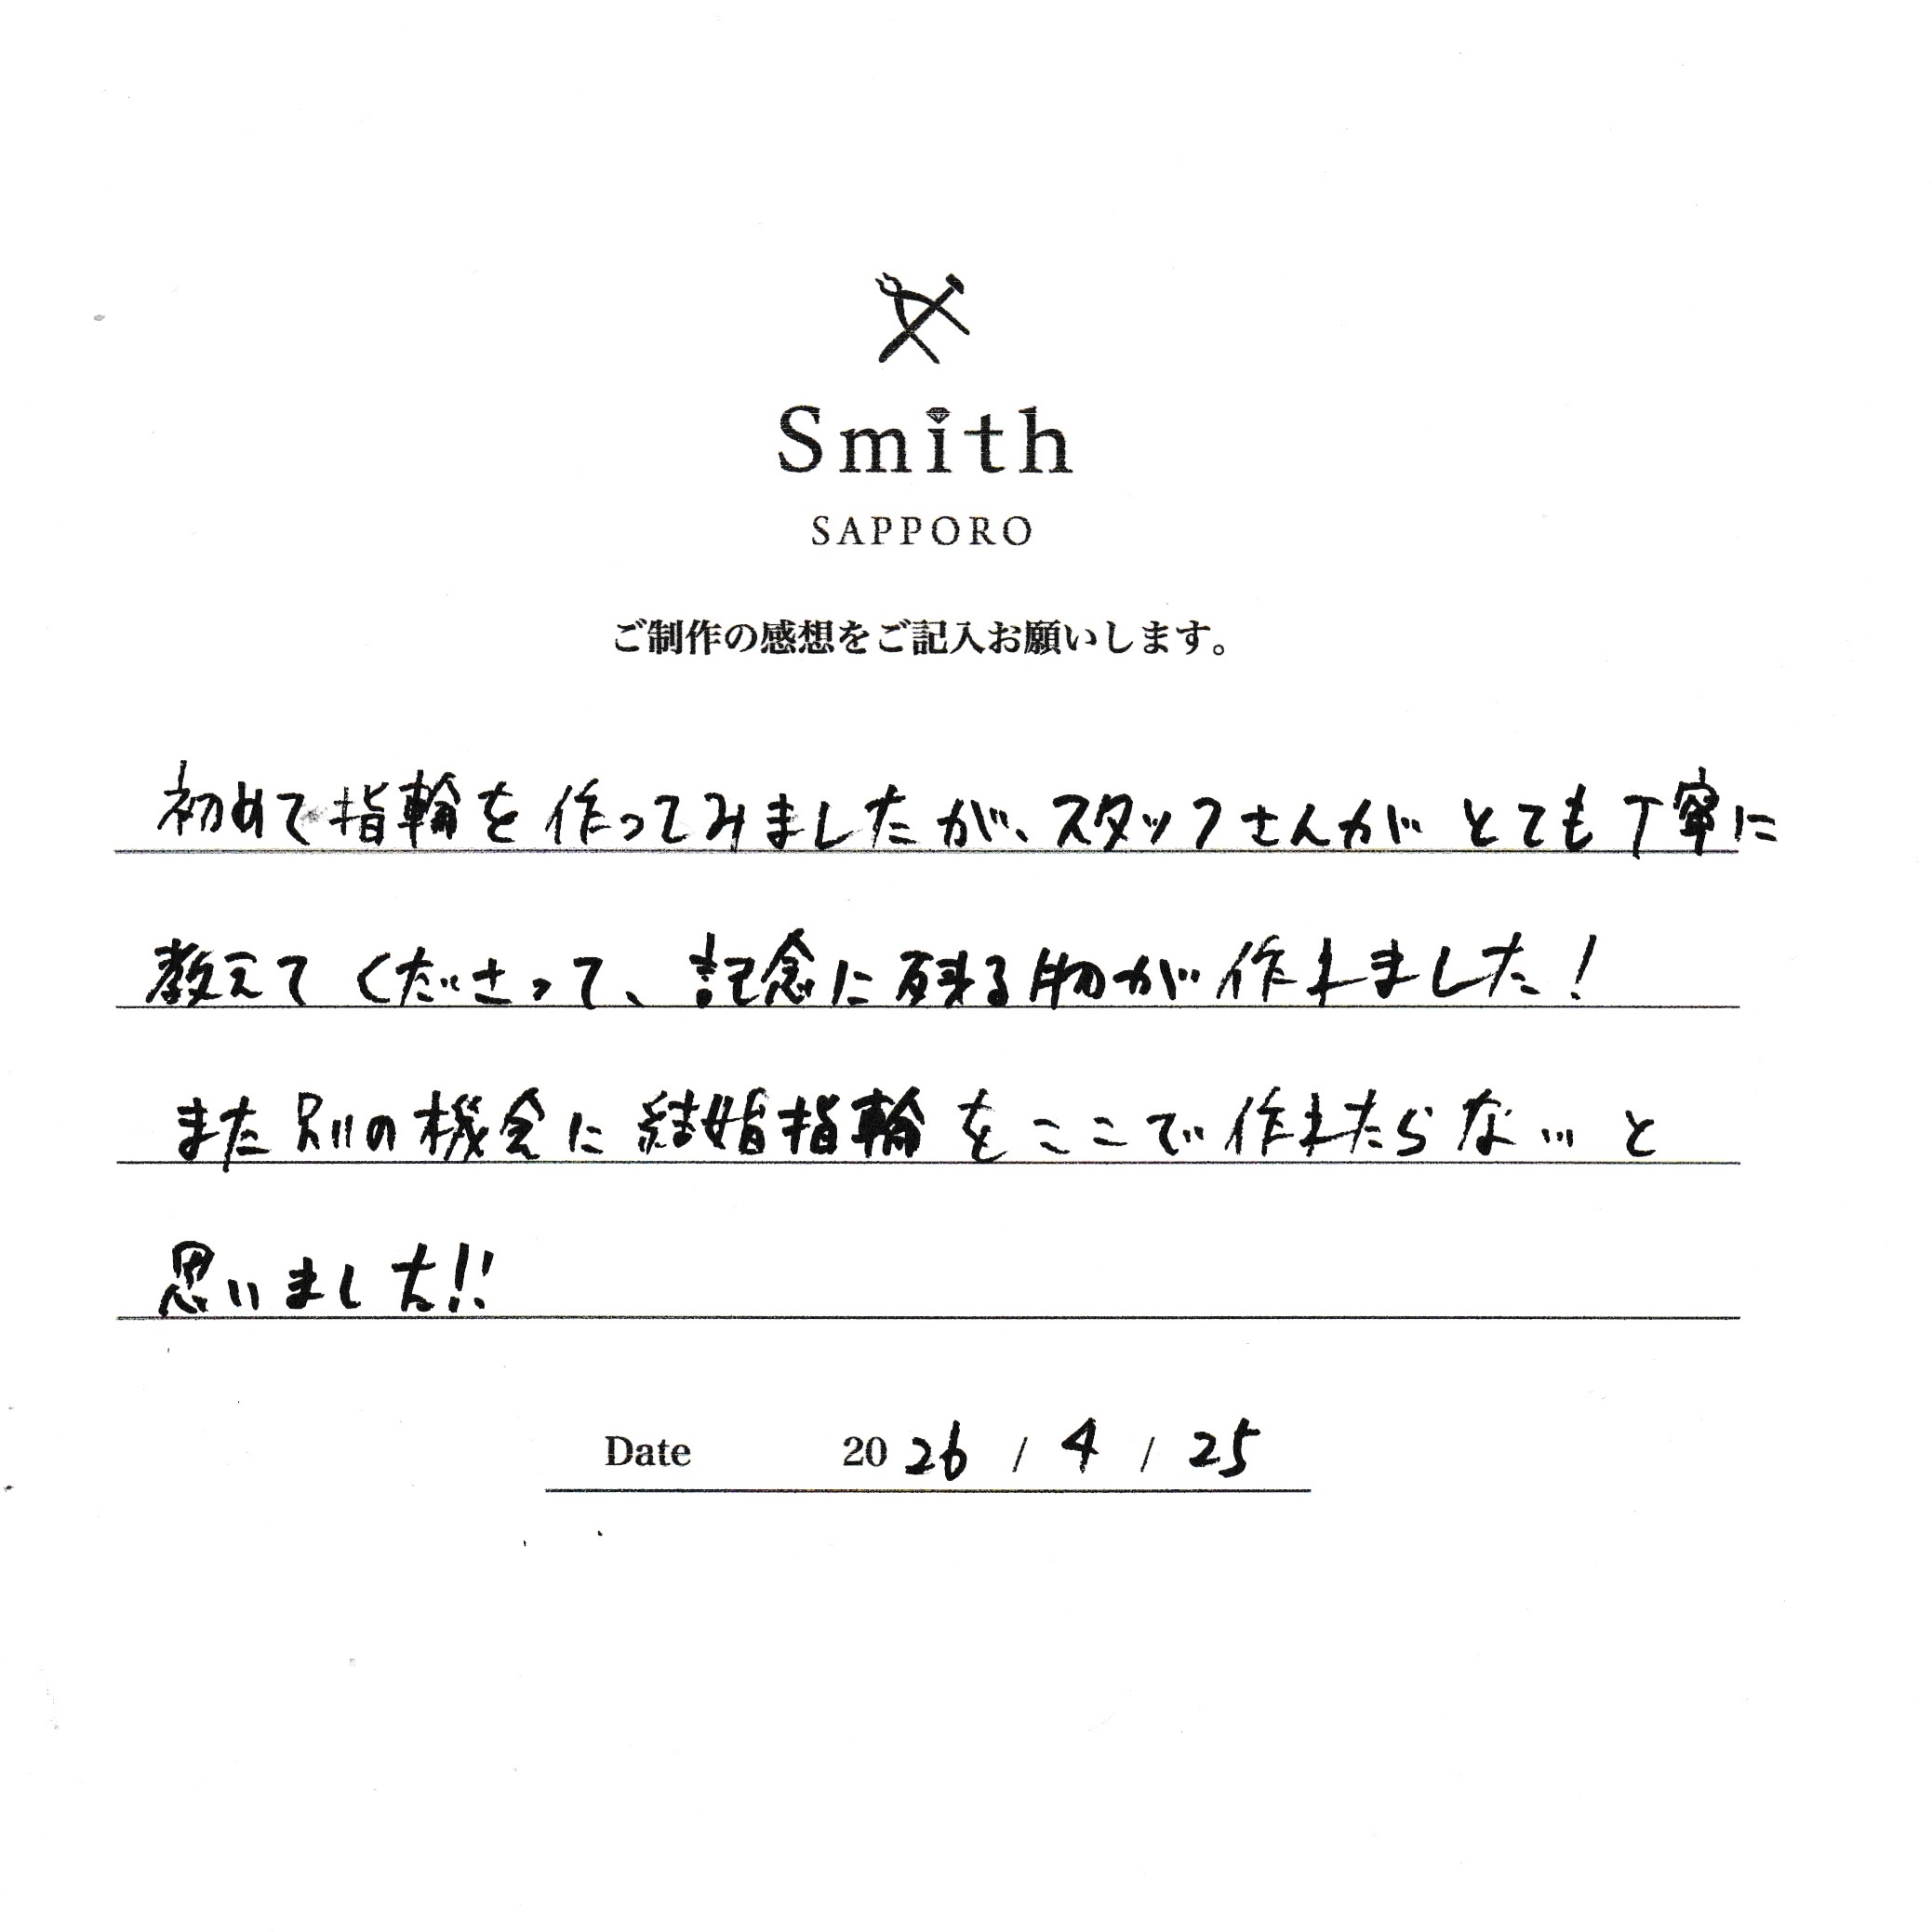 Smith
SAPPORO
ご制作の感想をご記入お願いします。
初めて指輪を作ってみましたが、スタッフさんがとても丁寧に
教えてくださって、記念に残る物が作れました!
また別の機会に結婚指輪をここで作れたらな…と
思いました!!
Date 2026 / 4 / 25